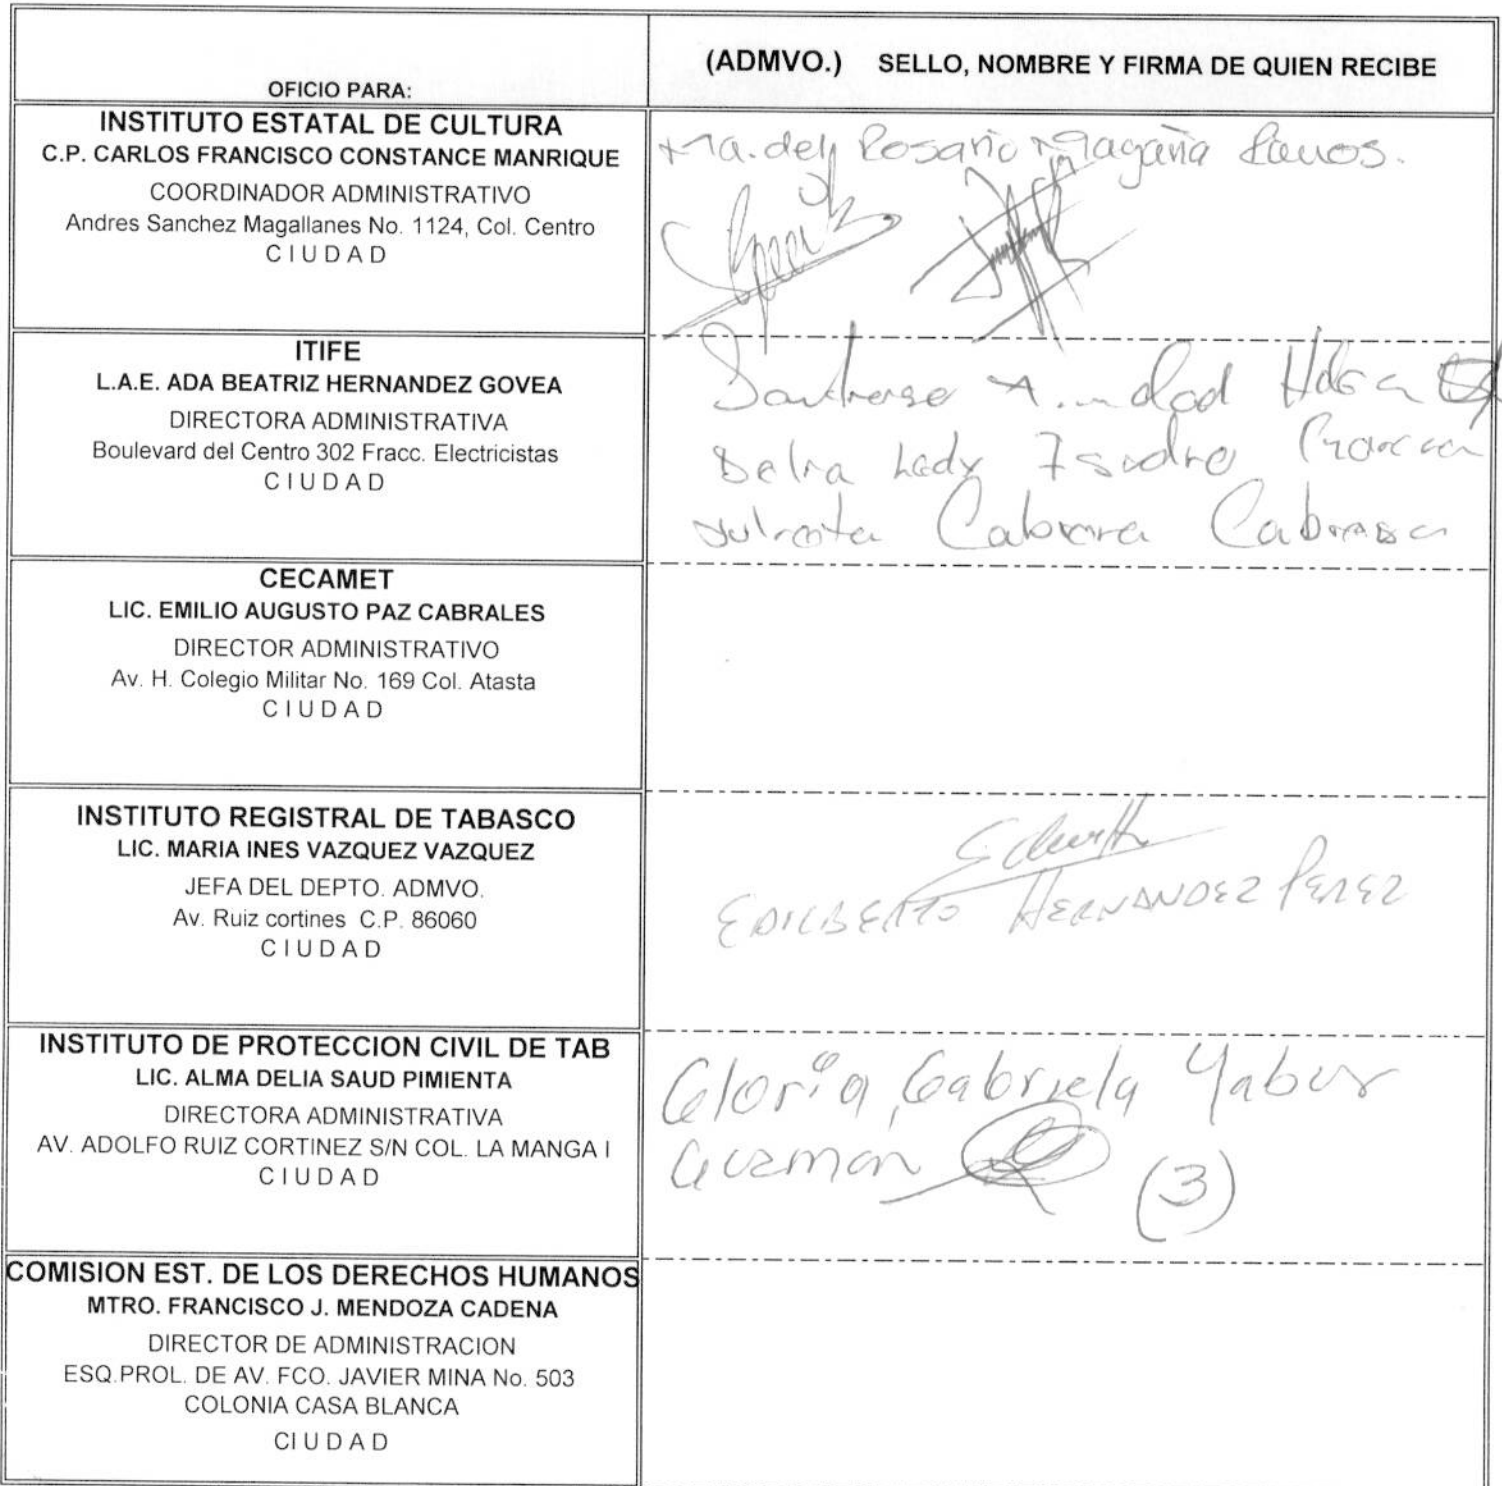 (ADMVO.) SELLO, NOMBRE Y FIRMA DE QUIEN RECIBE
OFICIO PARA:
INSTITUTO ESTATAL DE CULTURA
C.P. CARLOS FRANCISCO CONSTANCE MANRIQUE
COORDINADOR ADMINISTRATIVO
Andres Sanchez Magallanes No. 1124, Col. Centro
C I U D A D
Ma. del Rosario Magaña
ITIFE
L.A.E. ADA BEATRIZ HERNANDEZ GOVEA
DIRECTORA ADMINISTRATIVA
Boulevard del Centro 302 Fracc. Electricistas
C I U D A D
Lady Isidro
Cabrera
CECAMET
LIC. EMILIO AUGUSTO PAZ CABRALES
DIRECTOR ADMINISTRATIVO
Av. H. Colegio Militar No. 169 Col. Atasta
C I U D A D
INSTITUTO REGISTRAL DE TABASCO
LIC. MARIA INES VAZQUEZ VAZQUEZ
JEFA DEL DEPTO. ADMVO.
Av. Ruiz cortines C.P. 86060
C I U D A D
EDILBERTO HERNANDEZ PEREZ
INSTITUTO DE PROTECCION CIVIL DE TAB
LIC. ALMA DELIA SAUD PIMIENTA
DIRECTORA ADMINISTRATIVA
AV. ADOLFO RUIZ CORTINEZ S/N COL. LA MANGA I
C I U D A D
Gloria Gabriela Yabur
Guzman (3)
COMISION EST. DE LOS DERECHOS HUMANOS
MTRO. FRANCISCO J. MENDOZA CADENA
DIRECTOR DE ADMINISTRACION
ESQ.PROL. DE AV. FCO. JAVIER MINA No. 503
COLONIA CASA BLANCA
CI U D A D